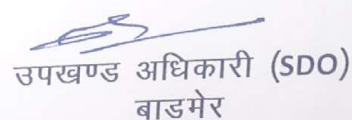 उपखण्ड अधिकारी (SDO)
बाडमेर